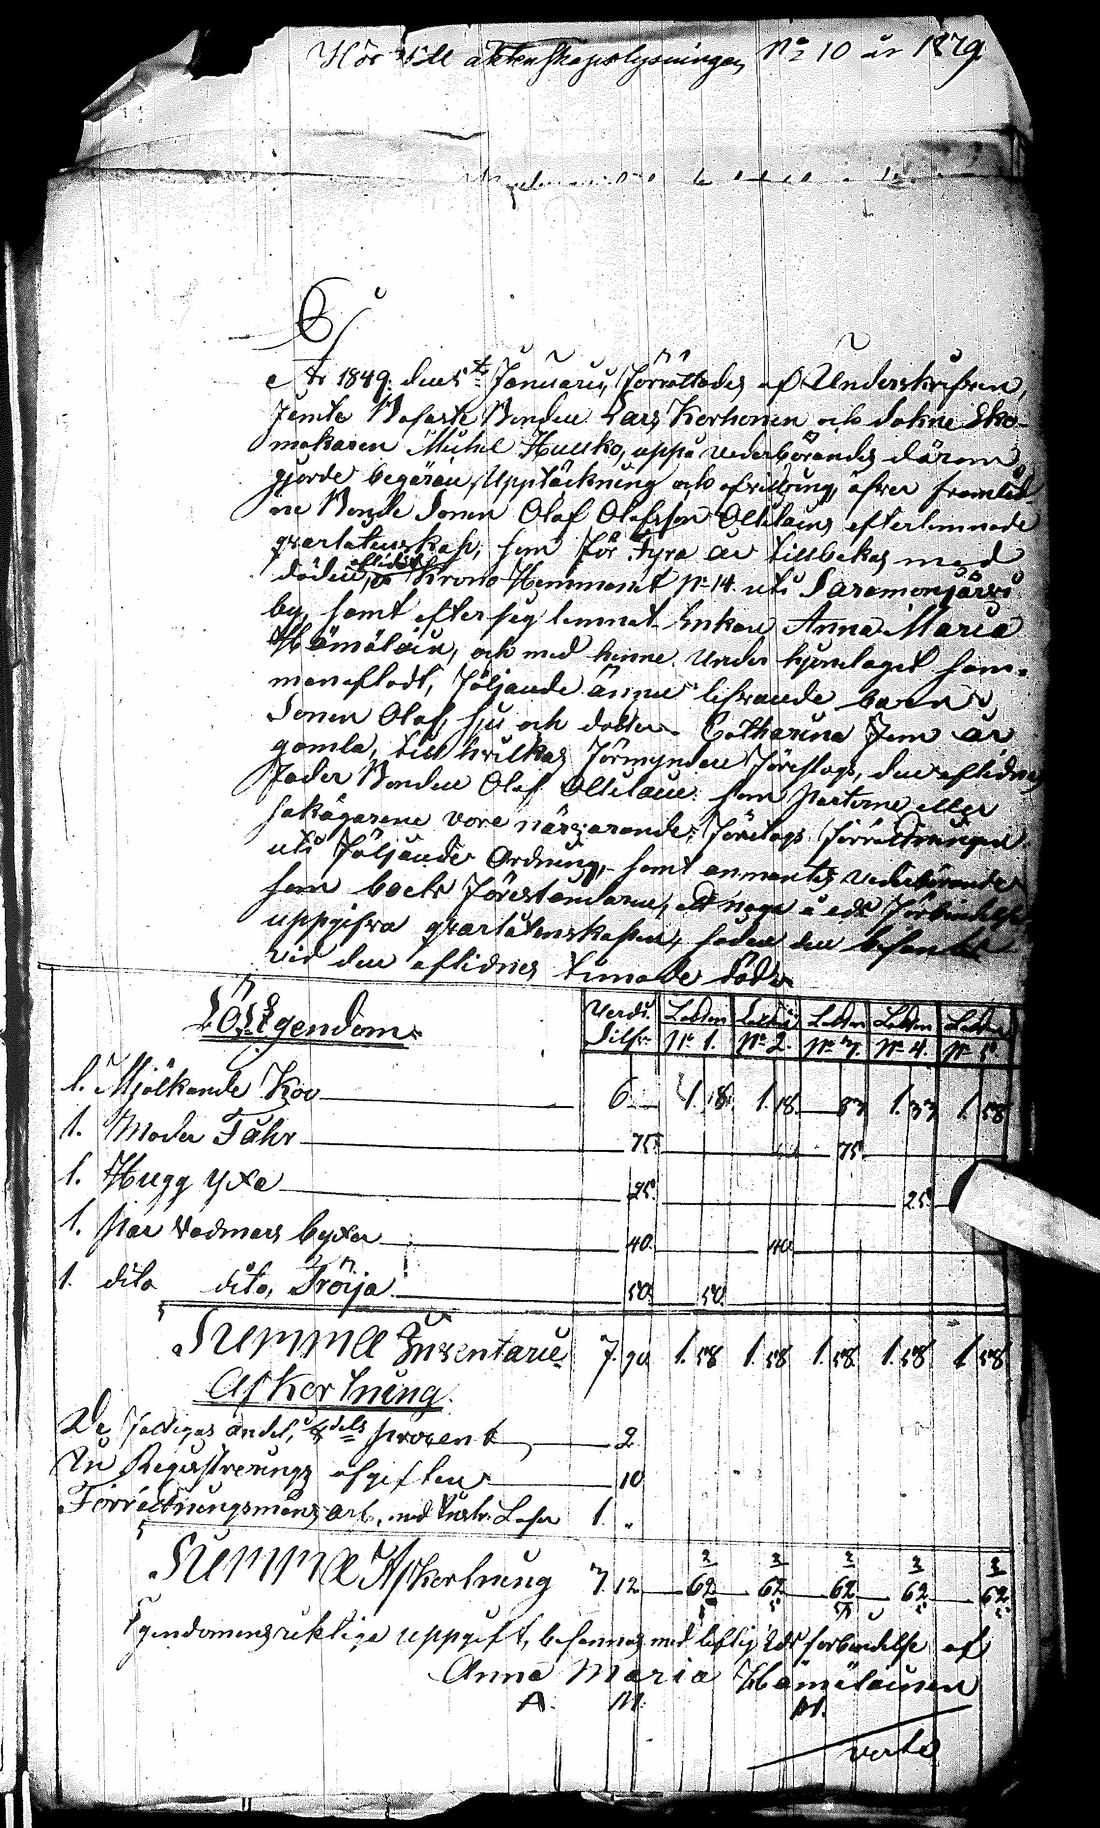 Hör till äktenskapslysningen No 10 år 1879.
År 1849. den 5te Januarii, förrättades af Underskrifven,
jemte Bofaste Bonden Lars Korhonen och Sokne Sko-
makaren Michel Huusko, uppå vederbörandes därom
gjorde begäran, Upptäckning och afvittring, äfver framlid
ne Bonde Sonen Olof Olofsson efterlemnade
qvarlåtenskap, som för fyra år tillbakas med
döden afledit å Krono Hemmanet No 14. uti Saramonjärvi
by, samt efter sig lemnat Enkan Anna Maria
Hämäläin, och med henne under hjonelaget sam-
manafladt, följande ännu lefvande barn,
Sonen Olof, sju och dotter Catharina fem år
gamla, till hvilkas förmyndare föreslogs, den aflidnes
fader Bonden Olof som parterne eller
sakägarene vore närvarande, företogs förrättningen
uti följande Ordning, samt anmantes vederbörande
som boets föreståndare, att noga å eds förbindelse
uppgifva qvarlåtenskapen, sådan den befants
vid den aflidnes timade död.
Lösegendom.
Verde Silfr. Lotten No 1. Lotten No 2. Lotten No 3. Lotten No 4. Lotten No 5.
1. Mjölkande Ko 6 1.18 1.18 83 1.33 1.58
1. Moder Fahr 75 75
1. Hugg yxa 25 25
1. par vadmars byxor 40 40
1. dito dito, Tröija 50 50
Summa Inventarie 7.90 1.58 1.58 1.58 1.58 1.58
Afkortning.
De fattigas andel, procent 2
Registrerings afgiften 10
Förrättningsmäns arf. 1. "
Summa Afkortning 3.12 62 2/5 62 2/5 62 2/5 62 2/5 62 2/5
Egendomens riktiga uppgift, med liflig Eds forbindelse af
Anna Maria Hämäläinen
A. M.
verte